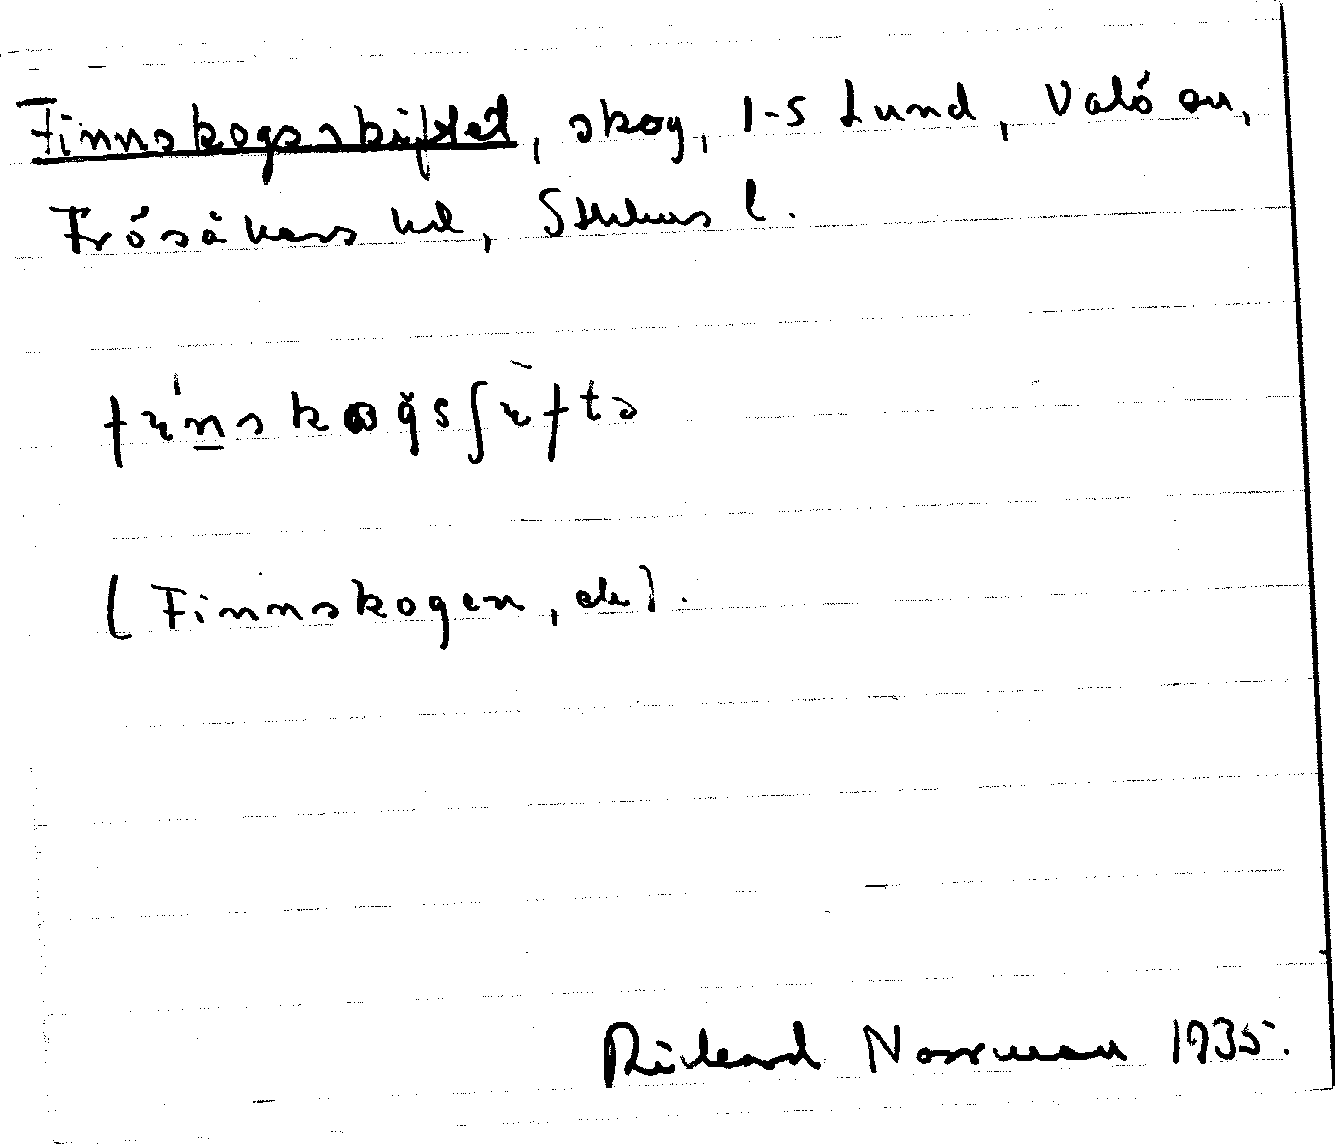 Finnskogsskiftet, skog, 1-5 Lund, Valö sn,
Frösåkers hd, Sthlms l.
(Finnskogen, ek).
Rickard Norrman 1935.